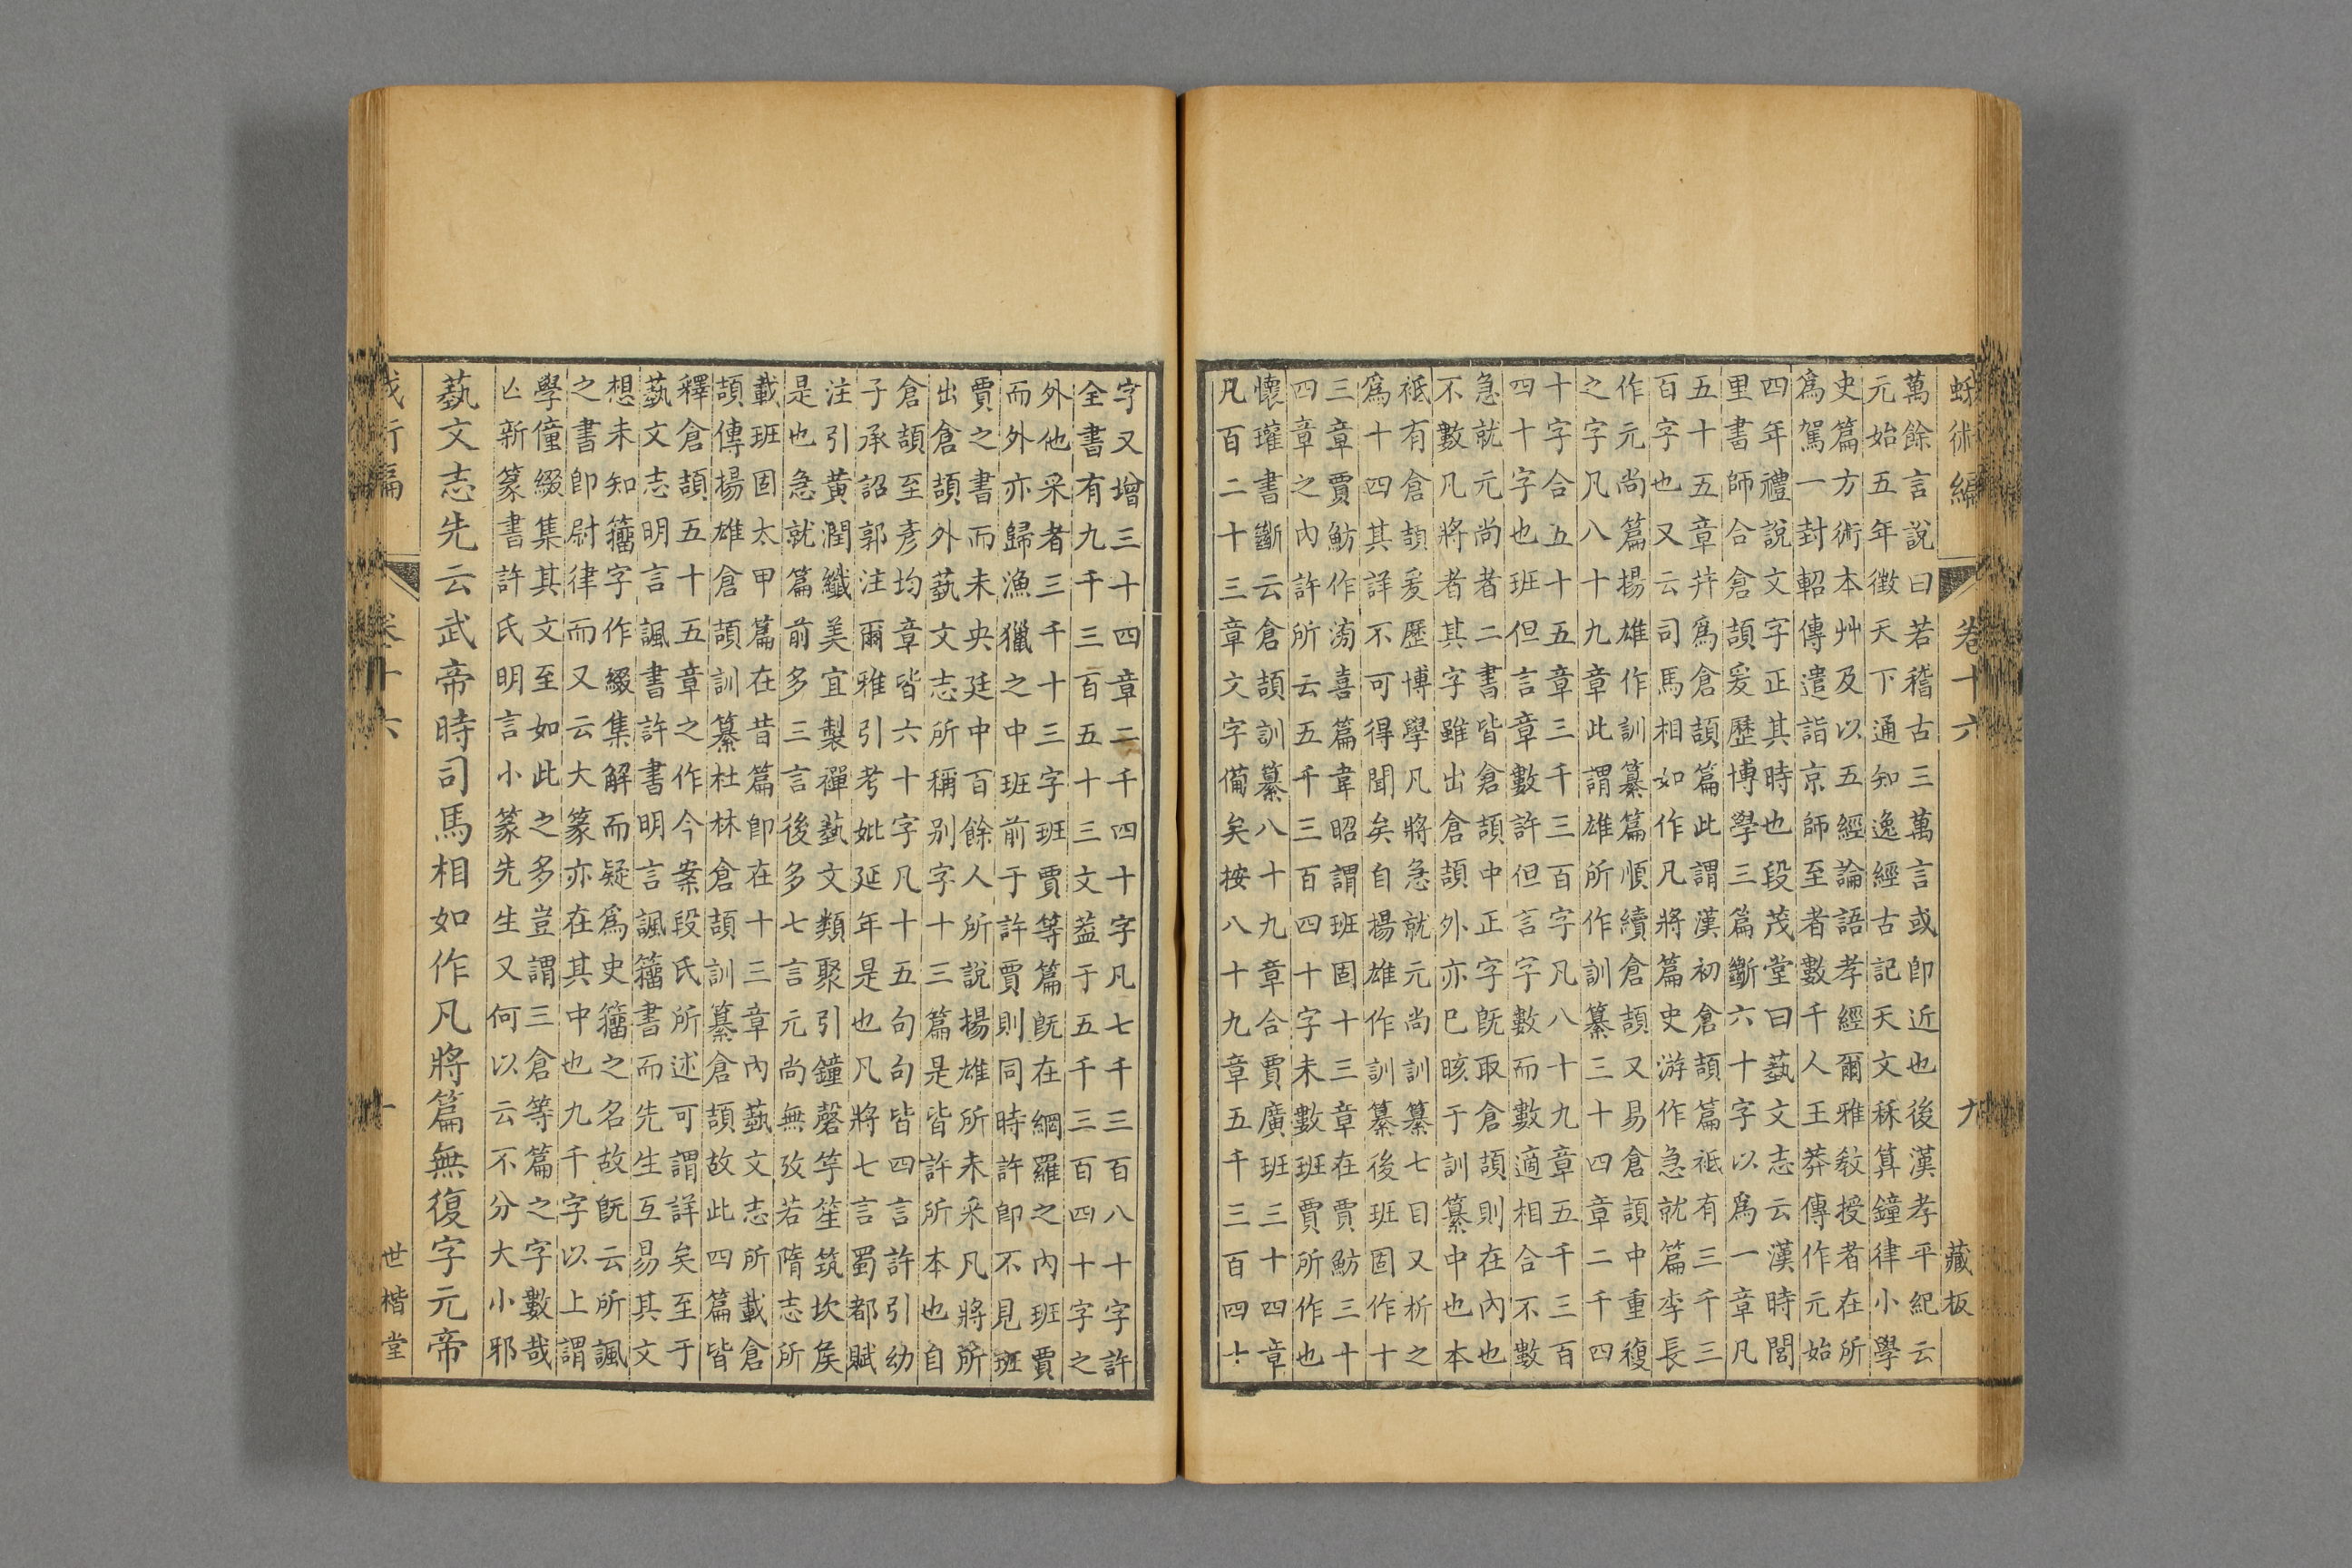 蛾術編 卷十六 九 藏板
萬餘言說曰若稽古三萬言或卽近也後漢孝平紀云
元始五年徵天下通知逸經古記天文秝算鐘律小學
史篇方術本艸及以五經論語孝經爾雅敎授者在所
爲駕一封軺傳遣詣京師至者數千人王莽傳作元始
四年禮說文字正其時也段茂堂曰藝文志云漢時閭
里書師合倉頡爰歷博學三篇斷六十字以爲一章凡
五十五章幷爲倉頡篇此謂漢初倉頡篇祗有三千三
百字也又云司馬相如作凡將篇史游作急就篇李長
作元尚篇揚雄作訓纂篇順續倉頡又易倉頡中重複
之字凡八十九章此謂雄所作訓纂三十四章二千四
十字合五十五章三千三百字凡八十九章五千三百
四十字也班但言章數許但言字數而數適相合不數
急就元尚者二書皆倉頡中正字旣取倉頡則在內也
不數凡將者其字雖出倉頡外亦巳晐于訓纂中也本
祗有倉頡爰歷博學凡將急就元尚訓纂七目又析之
爲十四其詳不可得聞矣自揚雄作訓纂後班固作十
三章賈魴作滂喜篇韋昭謂班固十三章在賈魴三十
四章之內許所云五千三百四十字未數班賈所作也
懷瓘書斷云倉頡訓纂八十九章合賈廣班三十四章
凡百二十三章文字備矣按八十九章五千三百四十
字又增三十四章二千四十字凡七千三百八十字許
全書有九千三百五十三文葢于五千三百四十字之
外他采者三千十三字班賈等篇旣在網羅之內班賈
而外亦歸漁獵之中班前于許賈則同時許卽不見班
賈之書而未央廷中百餘人所說揚雄所未采凡將所
出倉頡外藝文志所稱別字十三篇是皆許所本也自
倉頡至彥均章皆六十字凡十五句句皆四言許引幼
子承詔郭注爾雅引考妣延年是也凡將七言蜀都賦
注引黃潤纖美宜製禪藝文類聚引鐘磬竽笙筑坎矦
是也急就篇前多三言後多七言元尚無攷若隋志所
載班固太甲篇在昔篇卽在十三章內藝文志所載倉
頡傳揚雄倉頡訓纂杜林倉頡訓纂倉頡故此四篇皆
釋倉頡五十五章之作今案段氏所述可謂詳矣至于
藝文志明言諷書許書明言諷籒書而先生互易其文
想未知籒字作綴集解而疑爲史籒之名故旣云所諷
之書卽尉律而又云大篆亦在其中也九千字以上謂
學僮綴集其文至如此之多豈謂三倉等篇之字數哉
亾新篆書許氏明言小篆先生又何以云不分大小邪
藝文志先云武帝時司馬相如作凡將篇無復字元帝
世楷堂